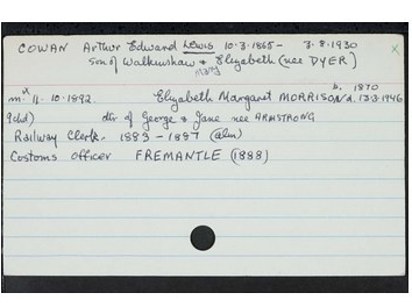 COWAN Arthur Edward Lewis 10.3.1865 - 3.8.1930
son of Walkinshaw & Elizabeth (nee DYER)
Mary
b. 1870
m. 11.10.1892. Elizabeth Margaret MORRISON d. 13.3.1946
9chd) dtr of George & Jane nee ARMSTRONG
Railway Clerk. 1883 - 1887 (alm)
Customs Officer FREMANTLE (1888)